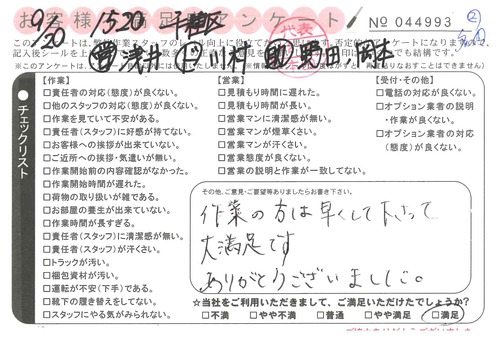 お客様満足度アンケート
9/20
1520
千種区
No 044993
②
代表
川村
記入後シールを上
【作業】
□責任者の対応(態度)が良くない。
□他のスタッフの対応(態度)が良くない。
□作業を見ていて不安がある。
□責任者(スタッフ)に好感が持てない。
□お客様への挨拶が出来ていない。
□ご近所への挨拶・気遣いが無い。
□作業開始前の内容確認がなかった。
□作業開始時間が遅れた。
□荷物の取り扱いが雑である。
□お部屋の養生が出来ていない。
□作業時間が長すぎる。
□責任者(スタッフ)に清潔感が無い。
□責任者(スタッフ)が汗くさい。
□トラックが汚い。
□梱包資材が汚い。
□運転が不安(下手)である。
□靴下の履き替えをしてない。
□スタッフにやる気がみられない。
【営業】
□見積もり時間に遅れた。
□見積もり時間が長い。
□営業マンに清潔感が無い。
□営業マンが煙草くさい。
□営業マンが汗くさい。
□営業態度が良くない。
□営業の説明と作業が一致してない。
【受付・その他】
□電話の対応が良くない。
□オプション業者の説明
・作業が良くない。
□オプション業者の対応
(態度)が良くない。
チェックリスト
その他、ご意見・ご要望等ありましたらお書き下さい。
作業の方は早くして下さって
大満足です
ありがとうございました。
☆当社をご利用いただきまして、ご満足いただけたでしょうか?
□不満 □やや不満 □普通 □やや満足 □満足